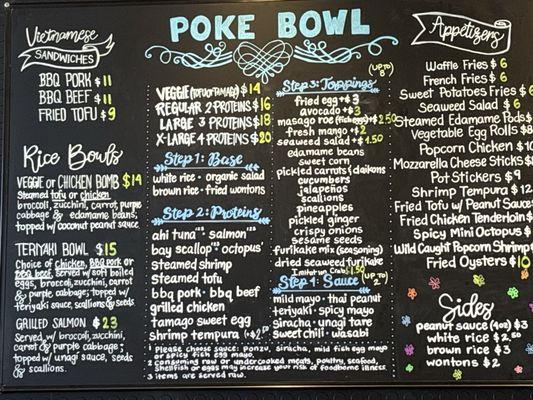 Vietnamese
SANDWICHES
BBQ PORK $11
BBQ BEEF $11
FRIED TOFU $9
Rice Bowls
VEGGIE or CHICKEN BOMB $14
Steamed tofu or chicken
broccoli, zucchini, carrot, purple
cabbage & edamame beans,
topped w/ coconut peanut sauce
TERIYAKI BOWL $15
Choice of chicken, BBQ pork or
BBQ beef, served w/ soft boiled
eggs, broccoli, zucchini, carrot
& purple cabbage; topped w/
teriyaki sauce, scallions & seeds
GRILLED SALMON $23
Served w/ broccoli, zucchini,
carrot & purple cabbage;
topped w/ unagi sauce, seeds
& scallions.
POKE BOWL
VEGGIE (TOFU + TAMAGO) $14
REGULAR 2 PROTEINS $16
LARGE 3 PROTEINS $18
X-LARGE 4 PROTEINS $20
Step 1: Base
white rice · organic salad
brown rice · fried wontons
Step 2: Proteins
ahi tuna · salmon
bay scallop · octopus
steamed shrimp
steamed tofu
bbq pork · bbq beef
grilled chicken
tamago sweet egg
shrimp tempura
Step 3: Toppings
(UP TO 8)
fried egg +$3
avocado +$3
masago roe (fish eggs) +$2.50
fresh mango +$2
seaweed salad +$1.50
edamame beans
sweet corn
pickled carrots & daikons
cucumbers
jalapeños
scallions
pineapples
pickled ginger
crispy onions
sesame seeds
furikake mix (seasoning)
dried seaweed furikake
Imitation Crab $1.50
Step 4: Sauce
(UP TO 2)
mild mayo · thai peanut
teriyaki · spicy mayo
siracha · unagi tare
sweet chili · wasabi
1 please choose sauce: ponzu, siracha, mild fish egg mayo
or spicy fish egg mayo.
2 consuming raw or undercooked meats, poultry, seafood,
shellfish or eggs may increase your risk of foodborne illness.
3 items are served raw.
Appetizers
Waffle Fries $6
French Fries $6
Sweet Potatoes Fries $6
Seaweed Salad $6
Steamed Edamame Pods $
Vegetable Egg Rolls $8
Popcorn Chicken $10
Mozzarella Cheese Sticks $8
Pot Stickers $9
Shrimp Tempura $12
Fried Tofu w/ Peanut Sauce
Fried Chicken Tenderloin $
Spicy Mini Octopus $
Wild Caught Popcorn Shrimp
Fried Oysters $10
Sides
peanut sauce (4oz) $3
white rice $2.50
brown rice $3
wontons $2